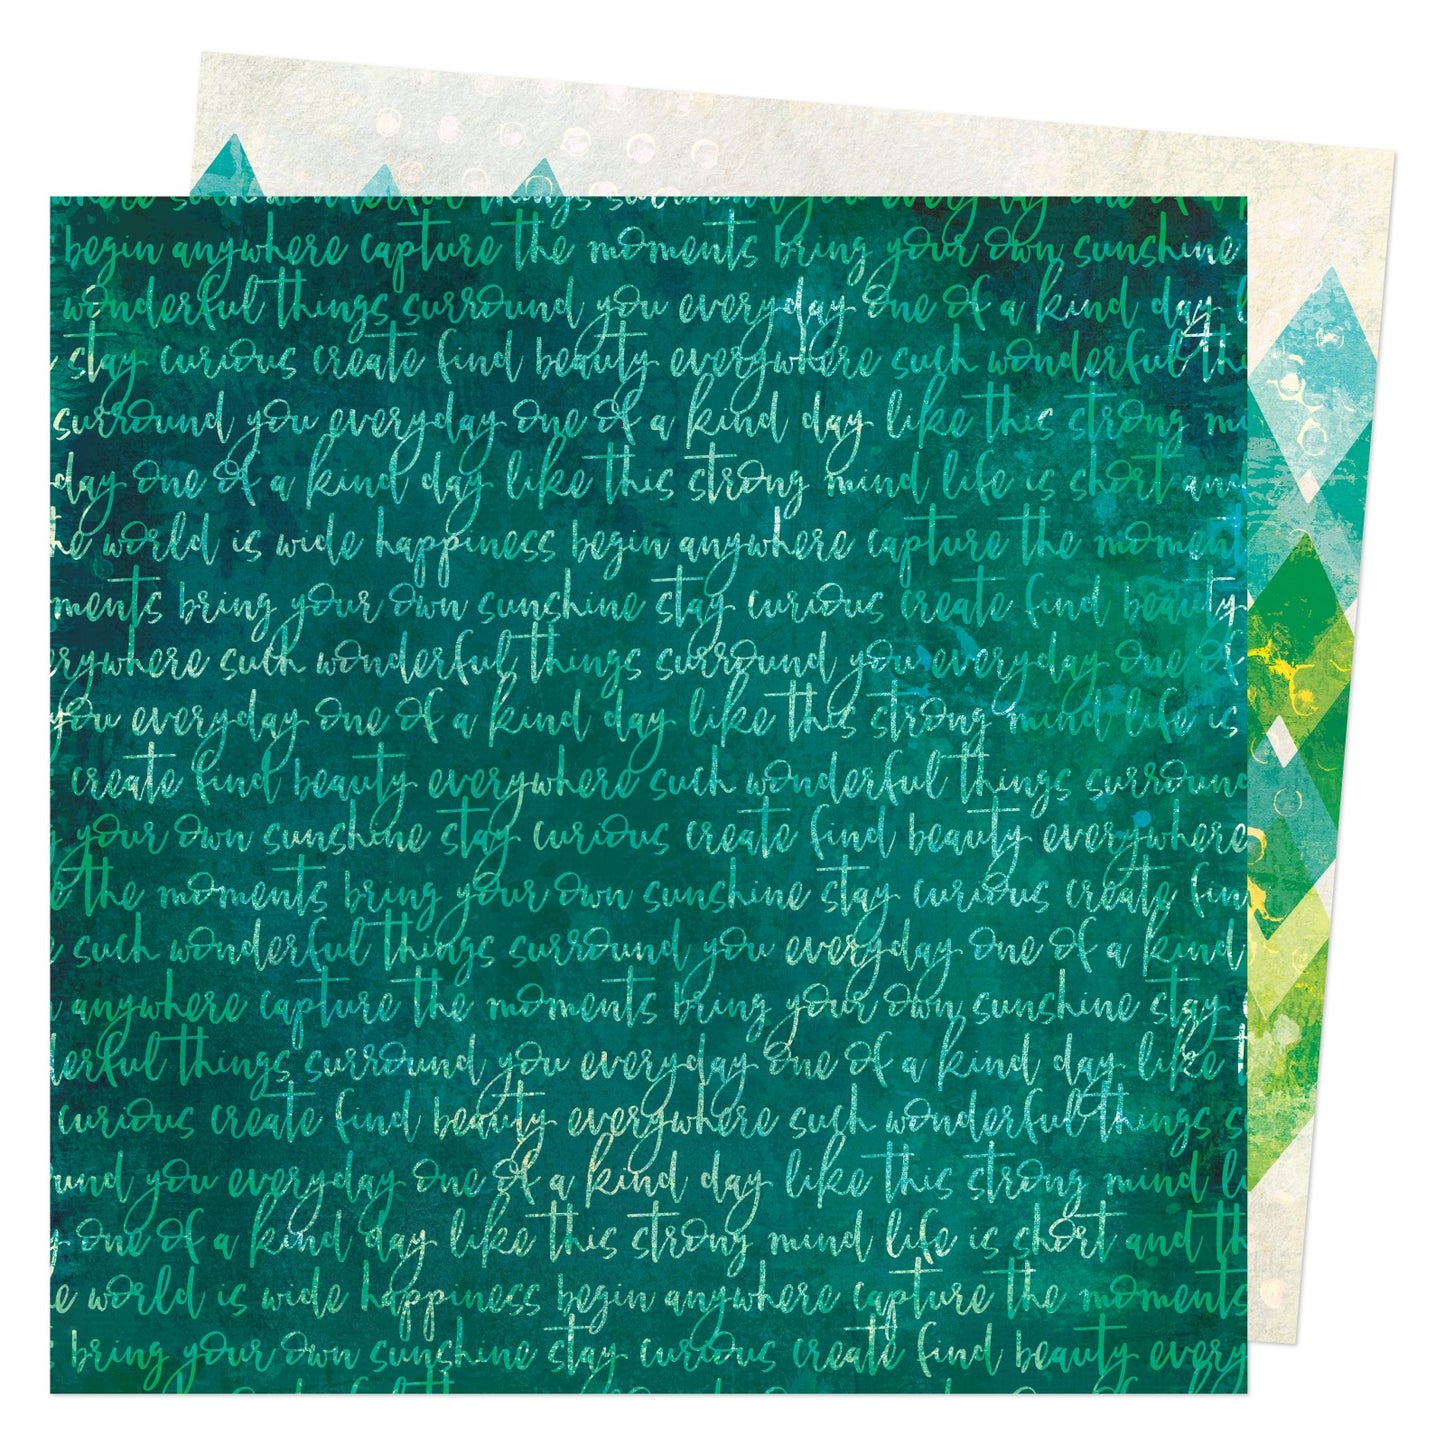 where such wonderful things surround you everyday one of a k
begin anywhere capture the moments bring your own sunshine
wonderful things surround you everyday one of a kind day l
stay curious create find beauty everywhere such wonderful th
surround you everyday one of a kind day like this strong mi
day one of a kind day like this strong mind life is short and
the world is wide happiness begin anywhere capture the moment
ments bring your own sunshine stay curious create find beauty
erywhere such wonderful things surround you everyday one of
you everyday one of a kind day like this strong mind life is
create find beauty everywhere such wonderful things surround
your own sunshine stay curious create find beauty everywhere
the moments bring your own sunshine stay curious create fin
such wonderful things surround you everyday one of a kind
anywhere capture the moments bring your own sunshine stay
derful things surround you everyday one of a kind day like t
curious create find beauty everywhere such wonderful things s
und you everyday one of a kind day like this strong mind li
one of a kind day like this strong mind life is short and th
e world is wide happiness begin anywhere capture the moments
bring your own sunshine stay curious create find beauty every